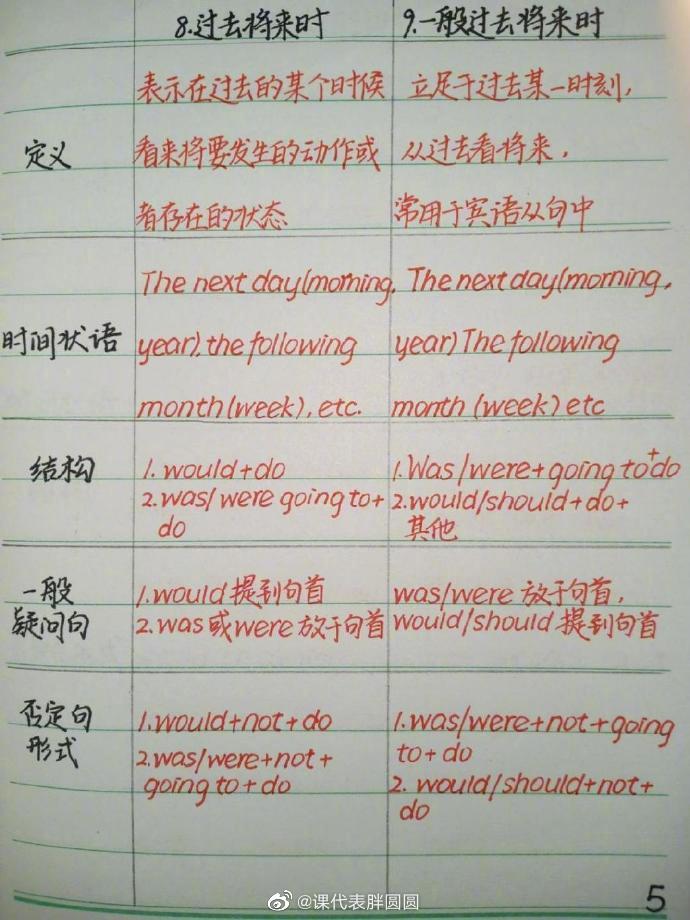 8.过去将来时
9.一般过去将来时
定义
表示在过去的某个时候
看来将要发生的动作或
者存在的状态
立足于过去某一时刻，
从过去看将来，
常用于宾语从句中
时间状语
The next day(morning,
year), the following
month(week), etc.
The next day(morning,
year) The following
month (week) etc
结构
1. would+do
2. was/were going to+
do
1. Was/were+going to+do
2. would/should+do+
其他
一般
疑问句
1. would提到句首
2. was或were放于句首
was/were放于句首，
would/should提到句首
否定句
形式
1. would+not+do
2. was/were+not+
going to+do
1. was/were+not+going
to+do
2. would/should+not+
do
5
@课代表胖圆圆